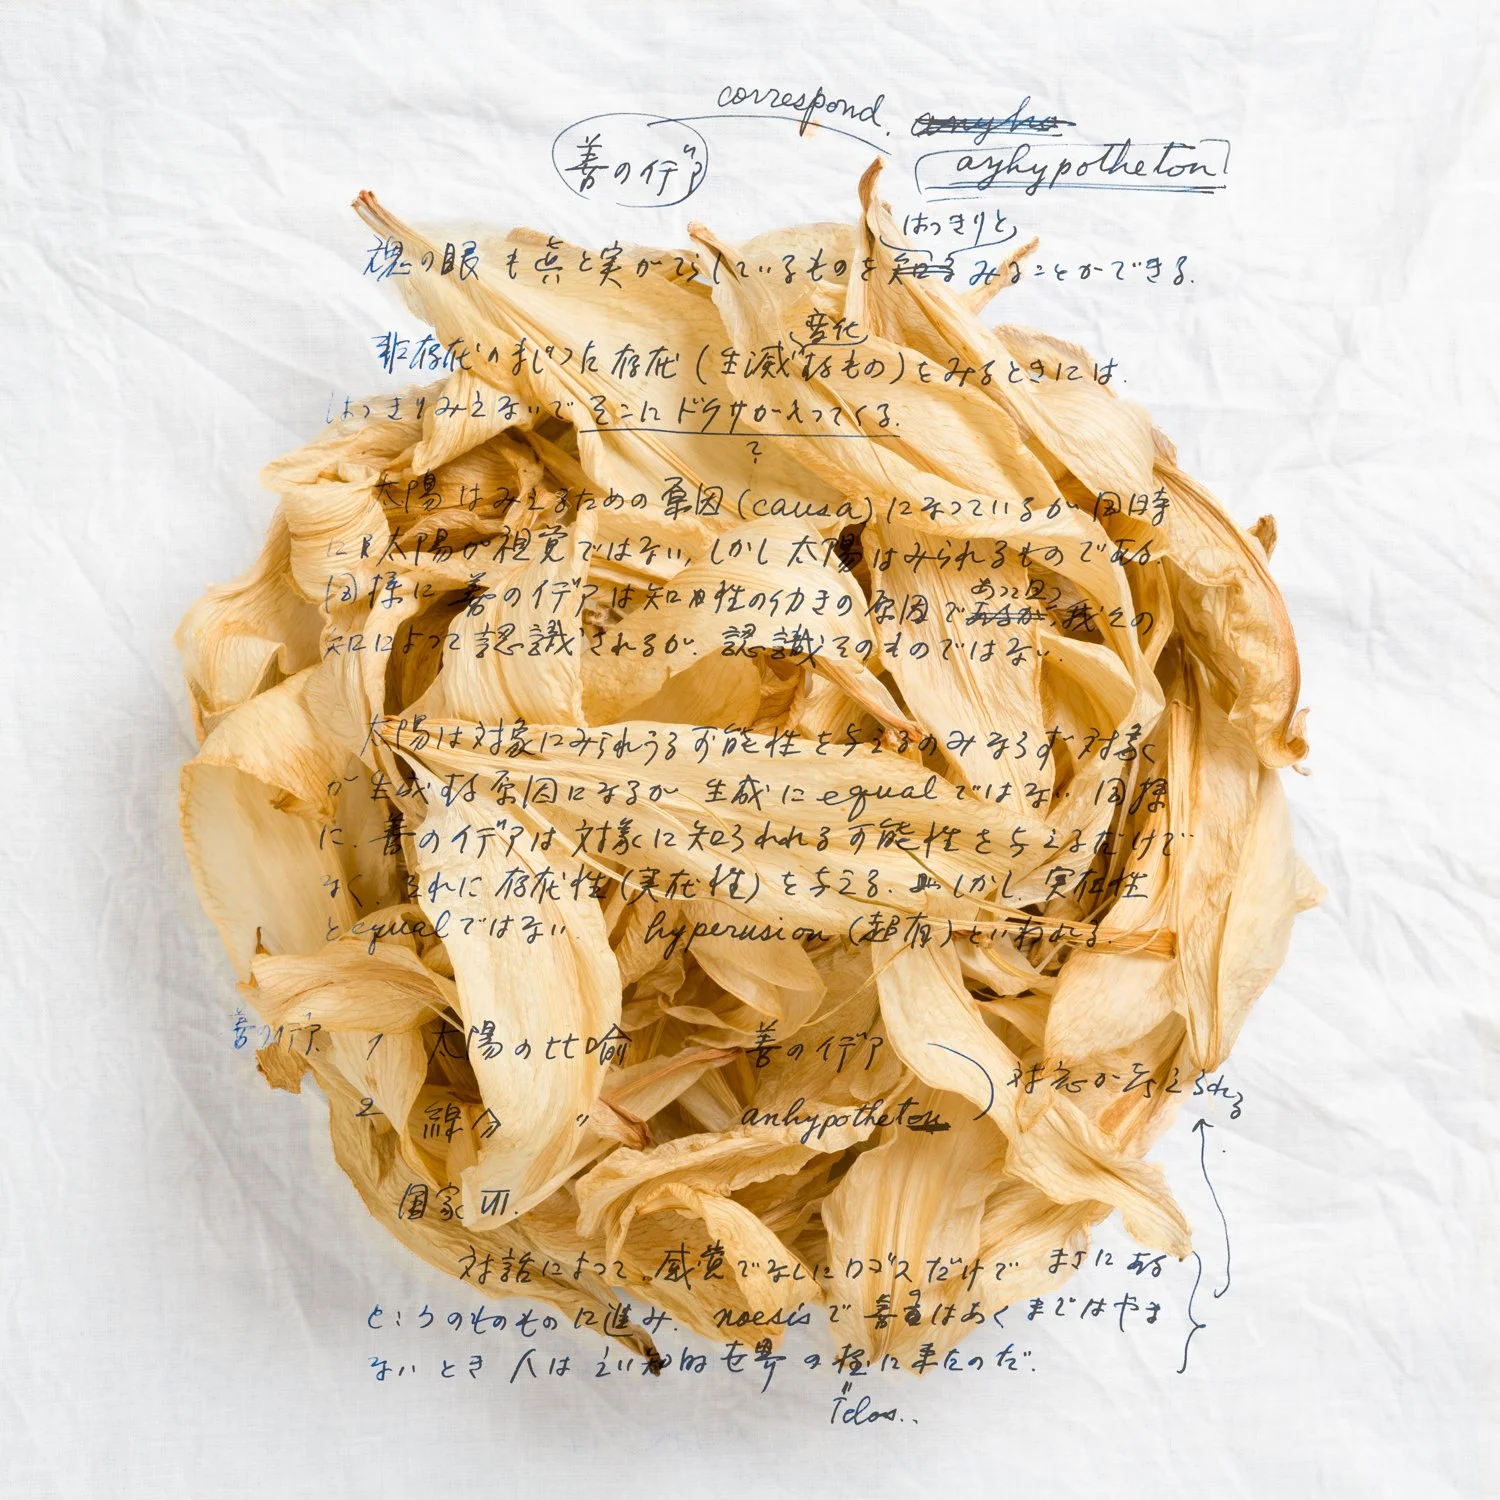 correspond.
善のイデア
anhypotheton
はっきりと
魂の眼も真と実がてらしているものをみることができる.
変化
非存在のまじった存在(生滅するもの)をみるときには.
はっきりみえないでそこにドクサがかえってくる.
?
太陽はみえるための原因(causa)になっているが同時
に太陽が視覚ではない,しかし太陽はみられるものである.
同様に善のイデアは知性の働きの原因で あって且つ その
知によって認識されるが.認識そのものではない.
太陽は対象にみられうる可能性を与えるのみならず対象
が生成する原因になるが 生成にequalではない 同様
に.善のイデアは対象に知られる可能性を与えるだけで
なく それに存在性(実在性)を与える.しかし.実在性
とequalではない. hyperusion(超有)といわれる.
善のイデア. 1 太陽の比喩 善のイデア
対応が与えられる
2 線分 〃 anhypotheton
国家 VII.
対話によって.感覚でなしにロゴスだけで まさにある
ところのものに進み. noesisで 善はあくまではやま
ないとき 人は 知的世界の極に来たのだ.
"
Telos..